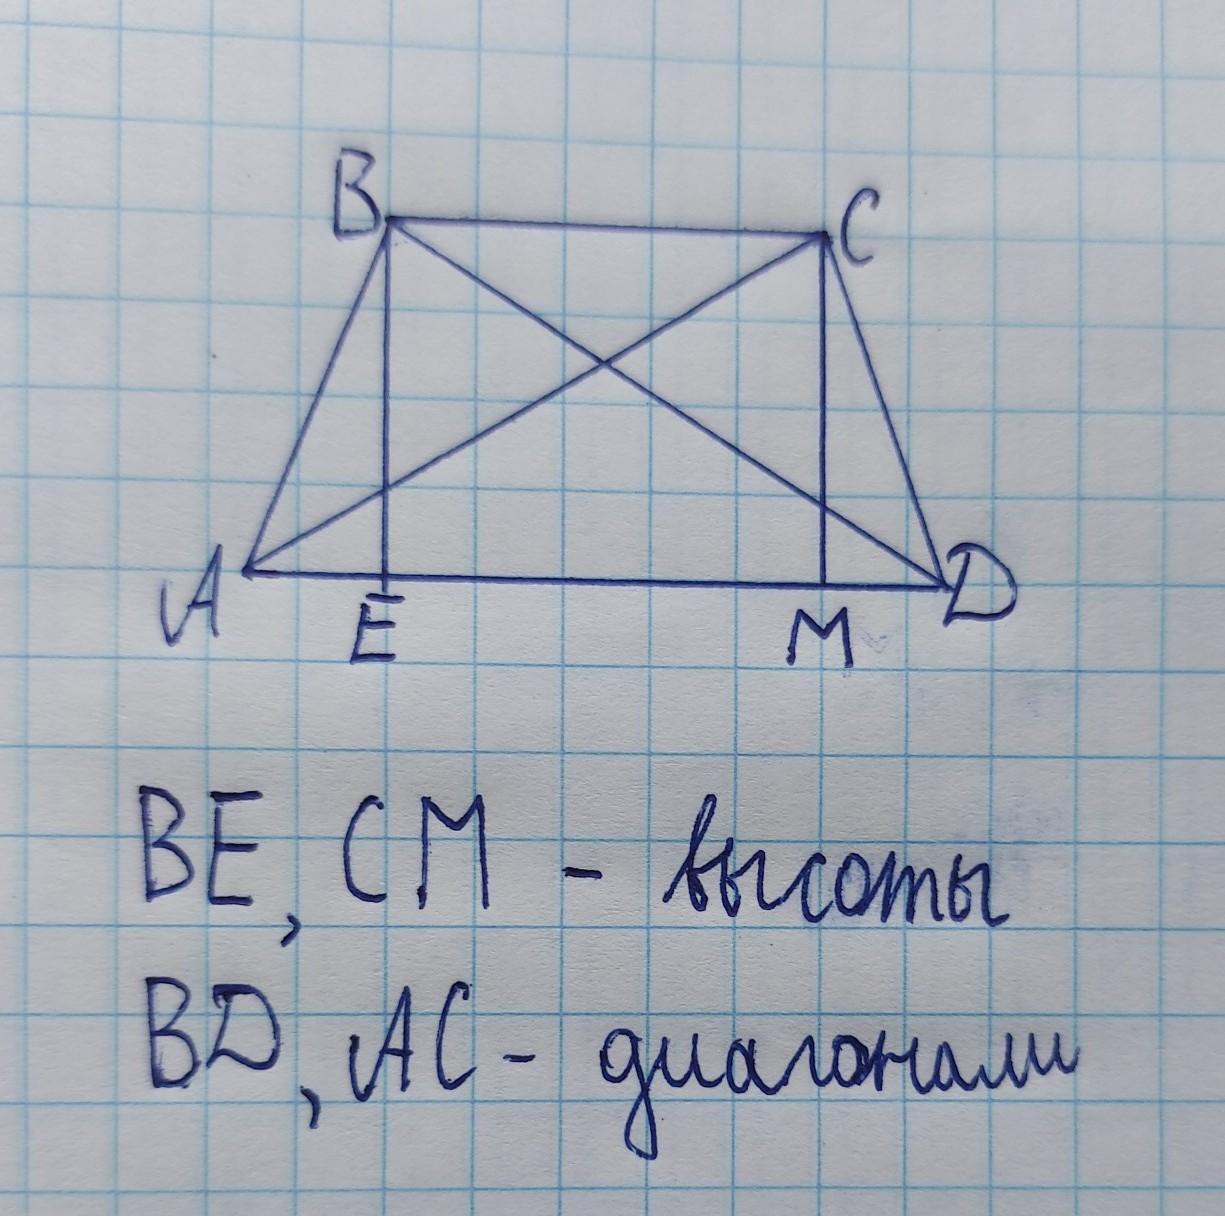 B C
A E M D
BE, CM - высоты
BD, AC - диагонали